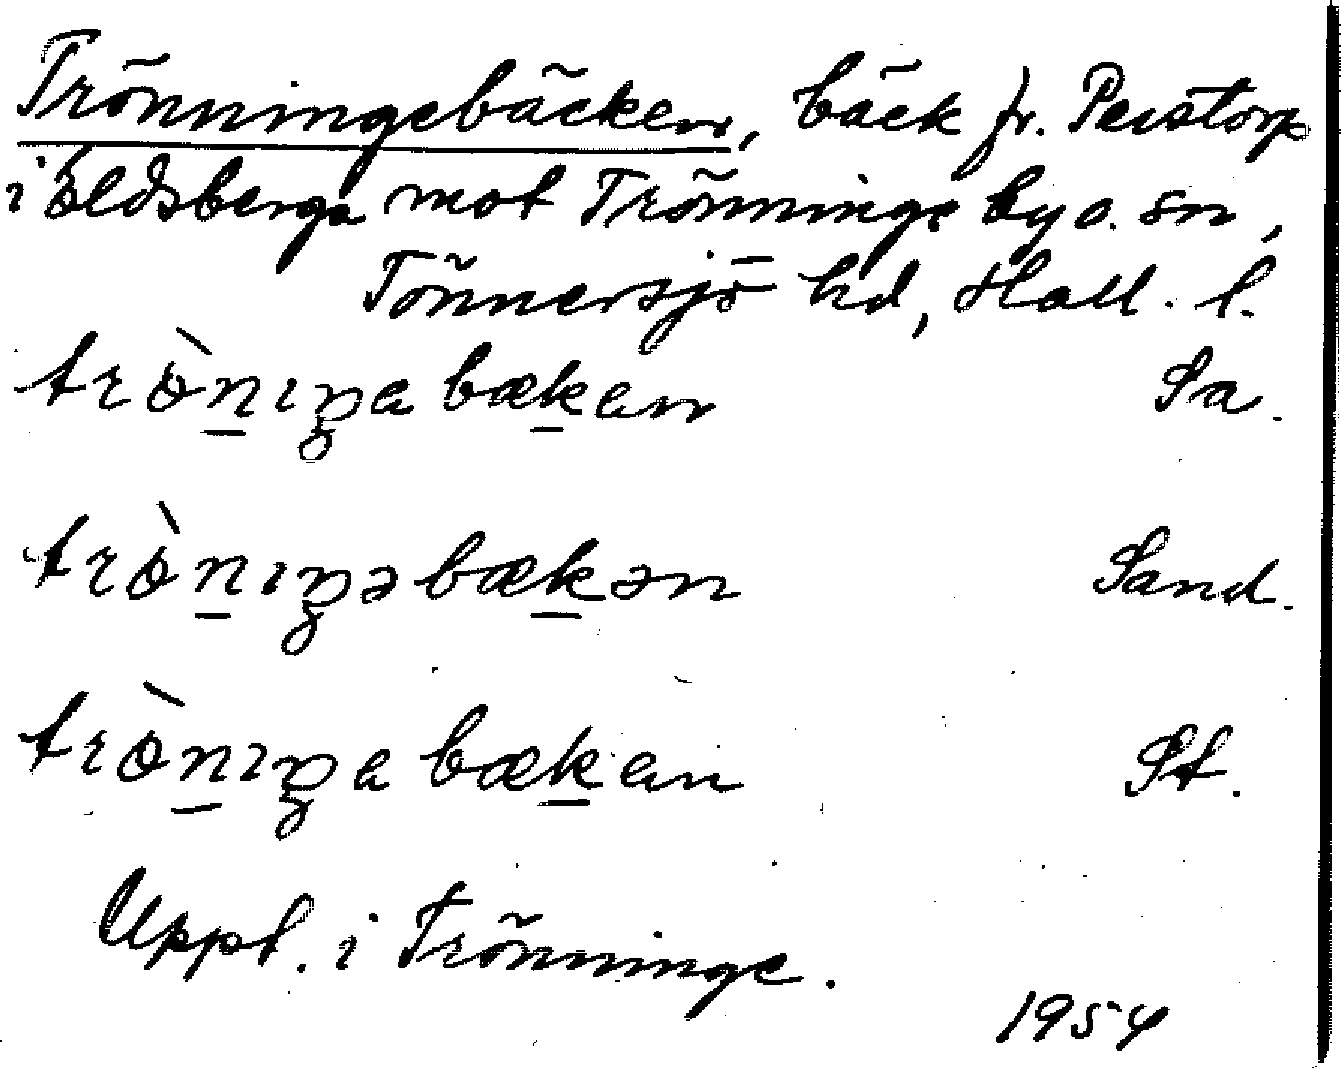 Trönningebäcken, bäck fr. Perstorp
i Eldsberga mot Trönninge by o. sn,
Tönnersjö hd, Hall. l.
trö̀nıŋabækan Sa.
trö̀nıŋəbækən Sand.
trö̀nıŋabækan St.
Uppt. i Trönninge.
1954